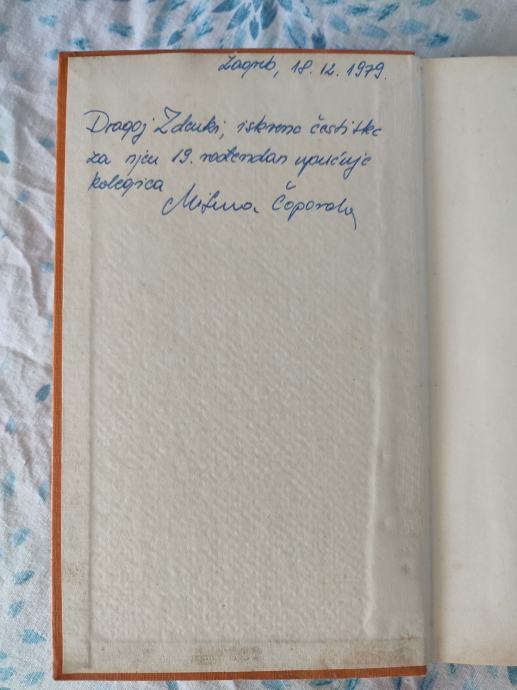 Zagreb, 18. 12. 1979.
Dragoj Zdenki, iskrene čestitke
za njen 19. rođendan upućuje
kolegica